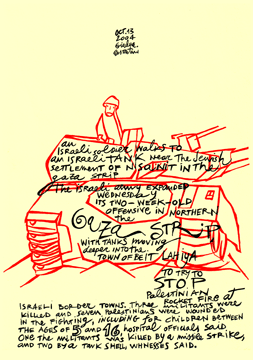 Oct. 13
2004
an
israeli soldier walks to
an israeli TANK near the Jewish
settlement of NISSANIT in the
gaza strip
The israeli army expanded
Wednesday
ITS TWO-WEEK-OLD
OFFENSIVE IN NORTHERN
the
GUZA STRIP
WITH TANKS MOVING
deeper into the
TOWN OF BEIT LAHIYA
TO TRY TO
STOP
Palestinian
ROCKET FIRE at
ISRAELI BORDER TOWNS. Three militants were
killed and seven Palestinians were wounded
in the fighting, including four children between
the ages of 5 and 16, hospital officials said
One of the militants was killed by a missile strike,
and two by a tank shell, witnesses said.